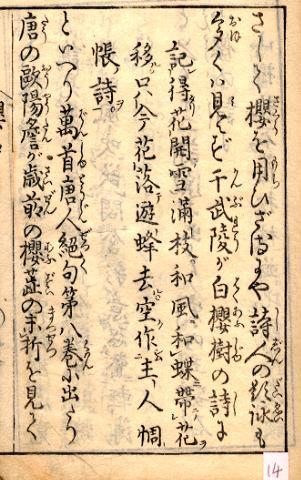 さして櫻を用ひざるにや詩人の題詠も
多くハ見えず于武陵が白櫻樹の詩に
記得花開雪滿枝和風和蝶帶花
移只今花落遊蜂去空作主人惆
悵詩
といへり萬首唐人絶句第八巻に出たり
唐の歐陽詹が歳前の櫻蕋の未折を見て
14